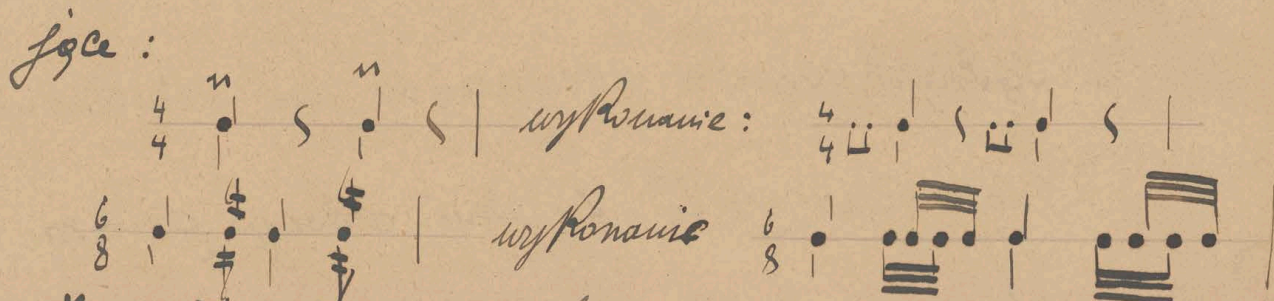 jące :
4 4 wykonanie: 4 4
6 8 wykonanie 6 8